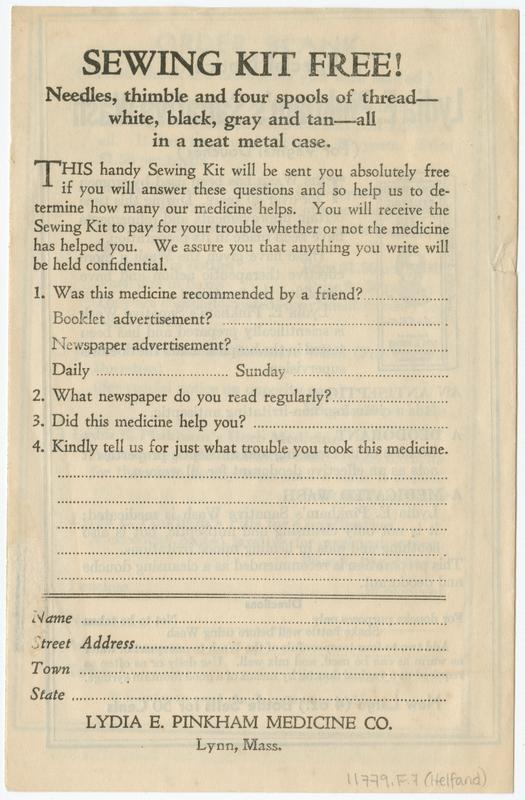 SEWING KIT FREE!
Needles, thimble and four spools of thread—
white, black, gray and tan—all
in a neat metal case.
THIS handy Sewing Kit will be sent you absolutely free
if you will answer these questions and so help us to de-
termine how many our medicine helps. You will receive the
Sewing Kit to pay for your trouble whether or not the medicine
has helped you. We assure you that anything you write will
be held confidential.
1. Was this medicine recommended by a friend?
Booklet advertisement?
Newspaper advertisement?
Daily Sunday
2. What newspaper do you read regularly?
3. Did this medicine help you?
4. Kindly tell us for just what trouble you took this medicine.
Name
Street Address
Town
State
LYDIA E. PINKHAM MEDICINE CO.
Lynn, Mass.
11779.F.7 (Helfand)